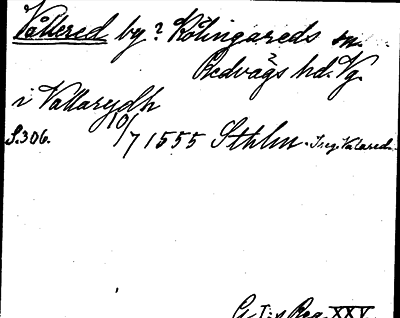 Vållered by? Kölingareds sn.
Redvägs hd. Vg.
i Vallarydh
S. 306. 10/7 1555 Sthlm. I reg. Valared.
G. I:s Reg. XXV.